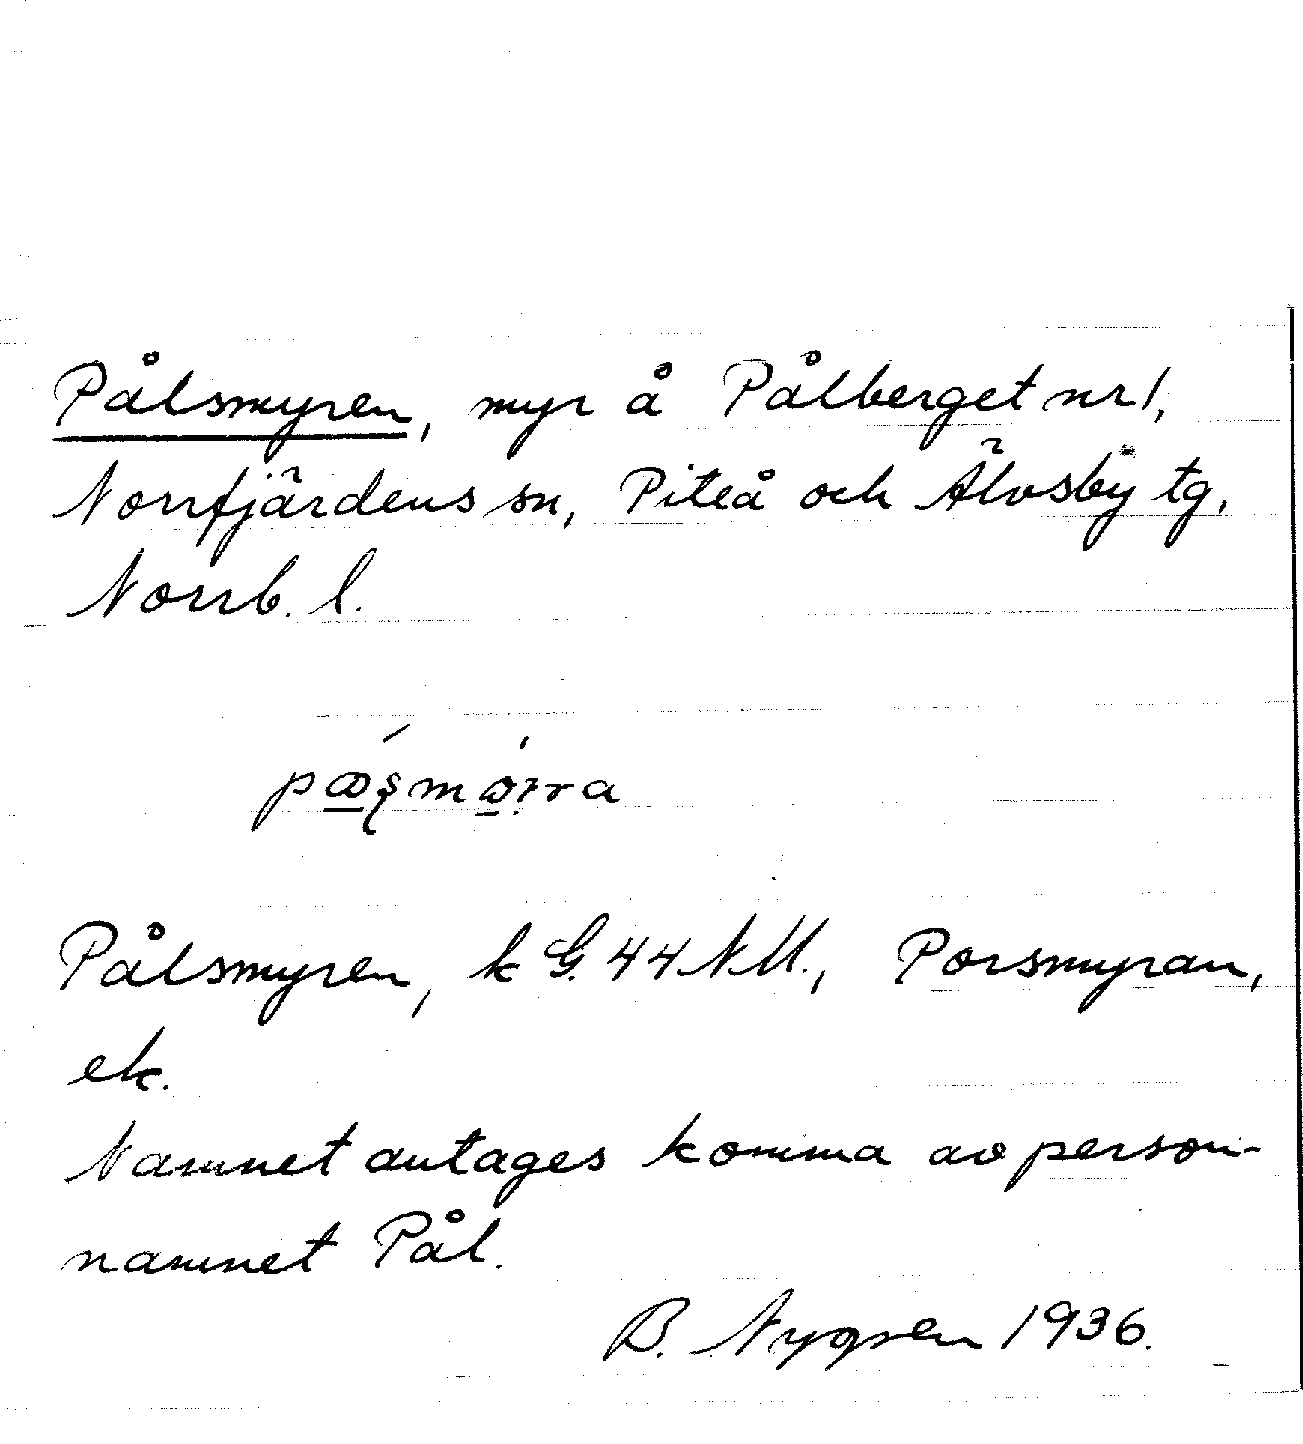 Pålsmyren, myr å Pålberget nr 1,
Norrfjärdens sn, Piteå och Älvsby tg,
Norrb. l.
Pålsmyren, k G. 44 NU., Porsmyran,
ek.
Namnet antages komma av person-
namnet Pål.
B. Nygren 1936.